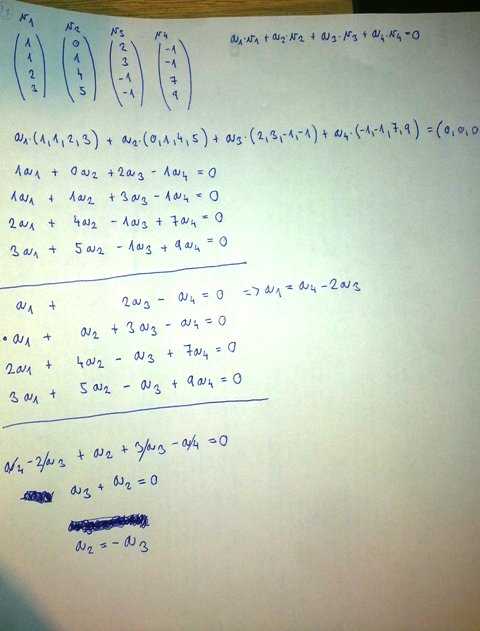 v1 v2 v3 v4
(1 1 2 3) (0 1 4 5) (2 3 -1 -1) (-1 -1 7 9) a1·v1 + a2·v2 + a3·v3 + a4·v4 = 0
a1·(1,1,2,3) + a2·(0,1,4,5) + a3·(2,3,-1,-1) + a4·(-1,-1,7,9) = (0,0,0
1a1 + 0a2 + 2a3 - 1a4 = 0
1a1 + 1a2 + 3a3 - 1a4 = 0
2a1 + 4a2 - 1a3 + 7a4 = 0
3a1 + 5a2 - 1a3 + 9a4 = 0
a1 + 2a3 - a4 = 0 => a1 = a4 - 2a3
• a1 + a2 + 3a3 - a4 = 0
2a1 + 4a2 - a3 + 7a4 = 0
3a1 + 5a2 - a3 + 9a4 = 0
a4 - 2a3 + a2 + 3a3 - a4 = 0
a3 + a2 = 0
a2 = - a3